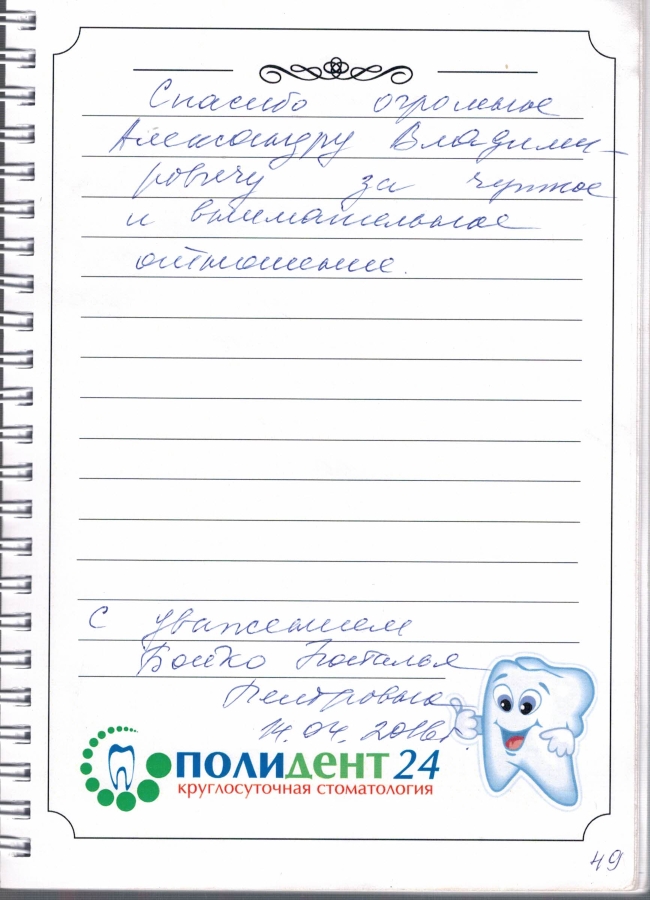 Спасибо огромное
Александру Владими-
ровичу за чуткое
и внимательное
отношение.
С уважением
Бойко Наталья
Петровна
14.04.2016г.
ПОЛИДЕНТ 24
круглосуточная стоматология
49